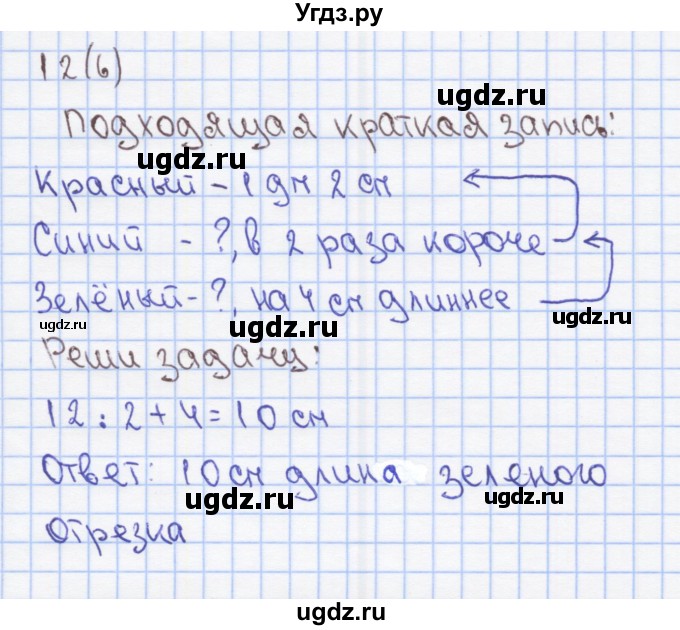 Угдз.ру
12(6)
ugdz.ru
Подходящая краткая запись:
ugdz.ru
Красный – 1 дм 2 см
Синий - ?, в 2 раза короче
ugdz.ru
Зелёный - ?, на 4 см длиннее
ugdz.ru ugdz.ru ugdz.ru
Реши задачу:
ugdz.ru
12 : 2 + 4 = 10 см
Ответ: 10 см длина зеленого
ugdz.ru ugdz.ru
отрезка
ugdz.ru